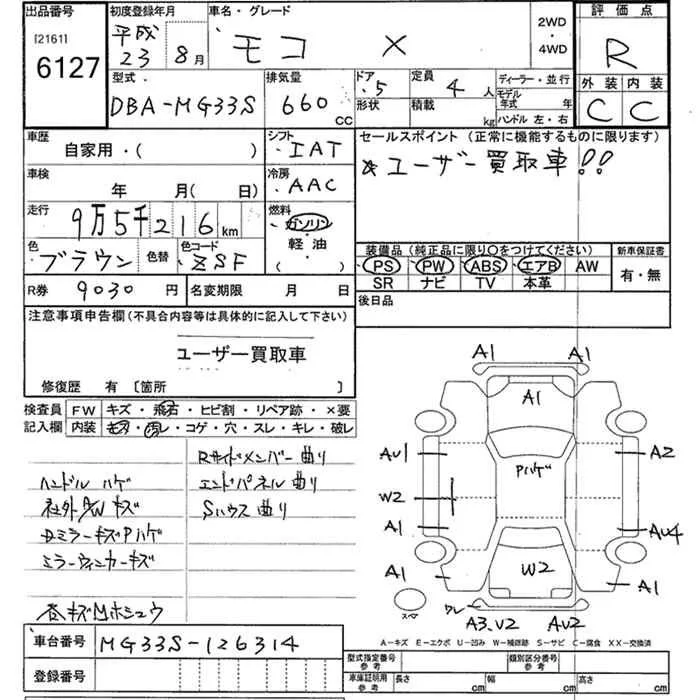 出品番号
[2161]
6127
初度登録年月
平成
23 8月
車名・グレード
モコ X
2WD
・
4WD
評価点
R
型式
DBA-MG33S
排気量
660 cc
ドア 5
形状
定員 4 人
積載 kg
ディーラー・並行
モデル年式 年
ハンドル 左・右
外装 内装
C C
車歴
自家用・( )
シフト
IAT
セールスポイント (正常に機能するものに限ります)
ユーザー買取車!!
車検
年 月( 日)
冷房
AAC
走行
9万5千216km
燃料
ガソリン
・
軽油
( )
色
ブラウン
色替
色コード
ZSF
装備品(純正品に限り○をつけてください)
PS PW ABS エアB AW
SR ナビ TV 本革
新車保証書
有・無
R券 9030 円
名変期限 月 日
後日品
注意事項申告欄(不具合内容等は具体的に記入して下さい)
ユーザー買取車
修復歴 有 〔箇所 〕
検査員記入欄
FW キズ・飛石・ヒビ割・リペア跡・×要
内装 キズ・汚レ・コゲ・穴・スレ・キレ・破レ
Rサイドメンバー曲り
ハンドルハゲ
エンドパネル曲り
社外AWキズ
Sハウス曲り
DミラーキズPハゲ
ミラーウィンカーキズ
各キズ凹ホシュウ
A1 A1
A1
AU1 A2
Pハゲ
W2
A1 AU4
A1 W2 A1
スペア
ワレ A3.U2 AU2
A－キズ E－エクボ U－凹み W－補修跡 S－サビ C－腐食 XX－交換済
車台番号 MG33S-126314
登録番号
型式指定番号
参考
類別区分番号
参考
車庫証明用
参考
長さ cm 幅 cm 高さ cm